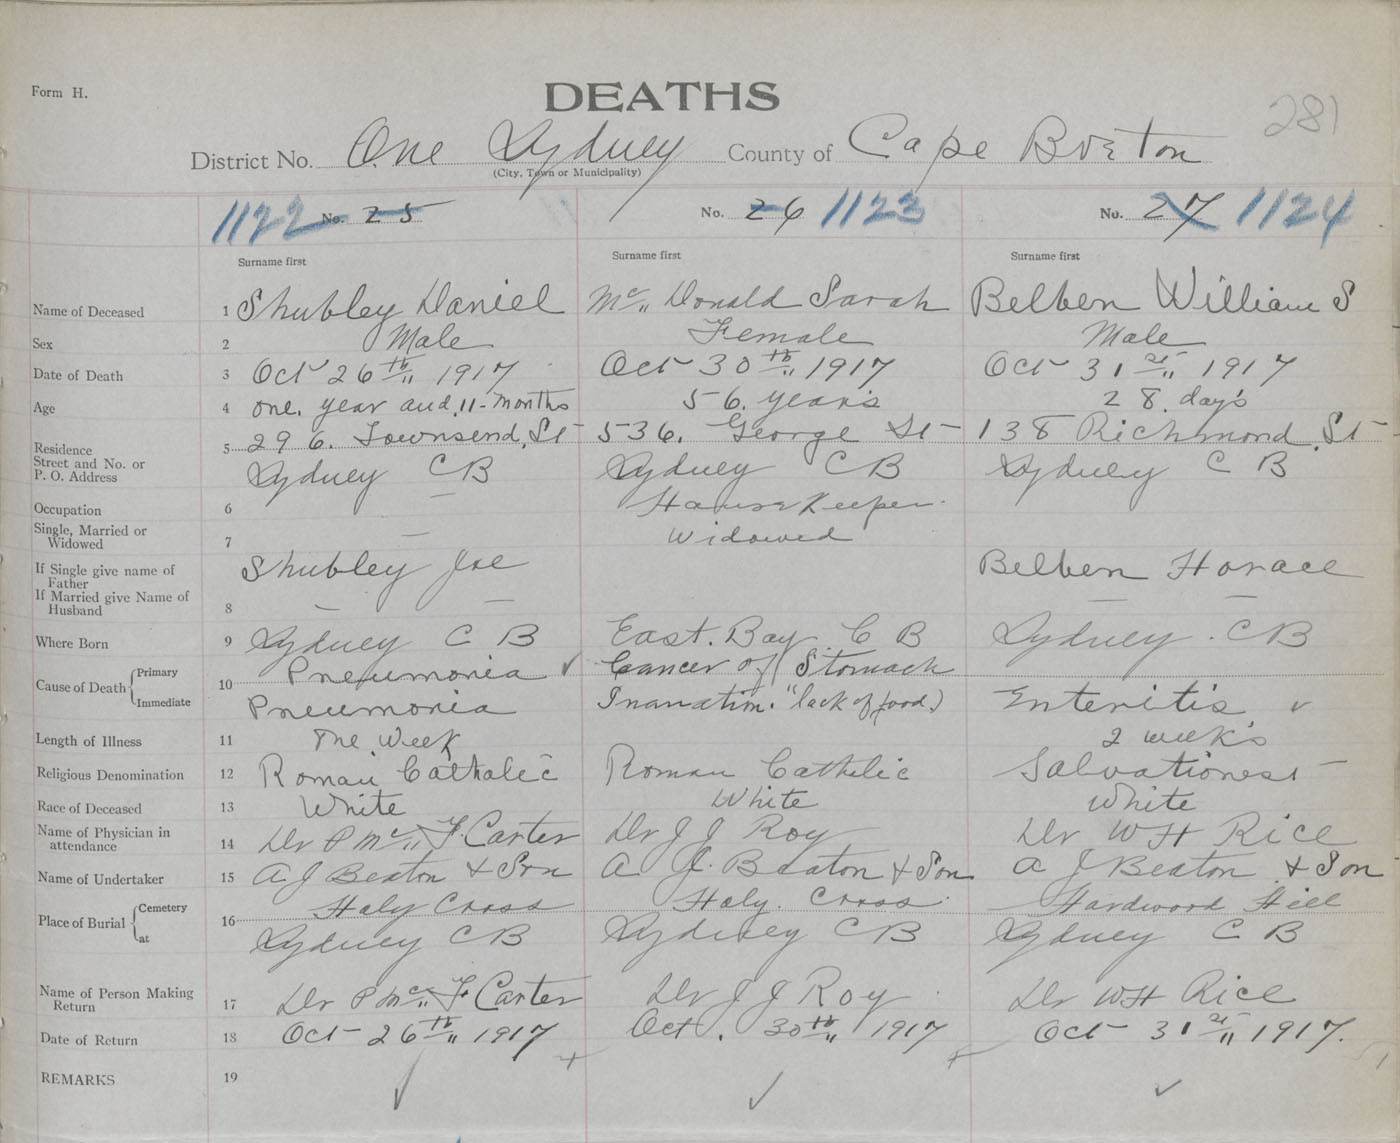 Form H.
DEATHS
281
District No. One Sydney County of Cape Breton
(City, Town or Municipality)
1122 No. 25 No. 26 1123 No. 27 1124
Surname first Surname first Surname first
Name of Deceased 1 Shubley Daniel Mc,, Donald Sarah Belben William S
Sex 2 Male Female Male
Date of Death 3 Oct 26th,, 1917 Oct 30th,, 1917 Oct 31st,, 1917
Age 4 one year and 11-months 56. years 28. days
Residence 5 296. Townsend. St 536. George St 138 Richmond. St
Street and No. or
P. O. Address Sydney C B Sydney C B Sydney C B
Occupation 6 — House Keeper
Single, Married or
Widowed 7 — Widowed
If Single give name of
Father Shubley Joe Belben Horace
If Married give Name of
Husband 8 — — — —
Where Born 9 Sydney C B East. Bay C B Sydney. C B
Cause of Death Primary 10 Pneumonia ✓ Cancer of Stomach
Immediate Pneumonia Inanation. "lack of food.) Enteritis ✓
Length of Illness 11 One Week 2 week's
Religious Denomination 12 Roman Catholic Roman Catholic Salvationest
Race of Deceased 13 White White White
Name of Physician in
attendance 14 Dr P Mc,, F. Carter Dr J J Roy Dr W H Rice
Name of Undertaker 15 A J Beaton & Son A. J. Beaton & Son A J Beaton & Son
Place of Burial Cemetery 16 Holy Cross Holy. Cross. Hardwood Hill
at Sydney C B Sydney C B Sydney C B
Name of Person Making
Return 17 Dr P Mc,, F Carter Dr J J Roy Dr W H Rice
Date of Return 18 Oct 26th,, 1917 Oct. 30th,, 1917 Oct 31st,, 1917.
REMARKS 19 ✓ ✓ ✓